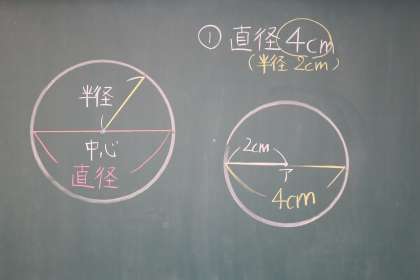 ① 直径 4cm
(半径 2cm)
半径
中心
直径
2cm
ア
4cm